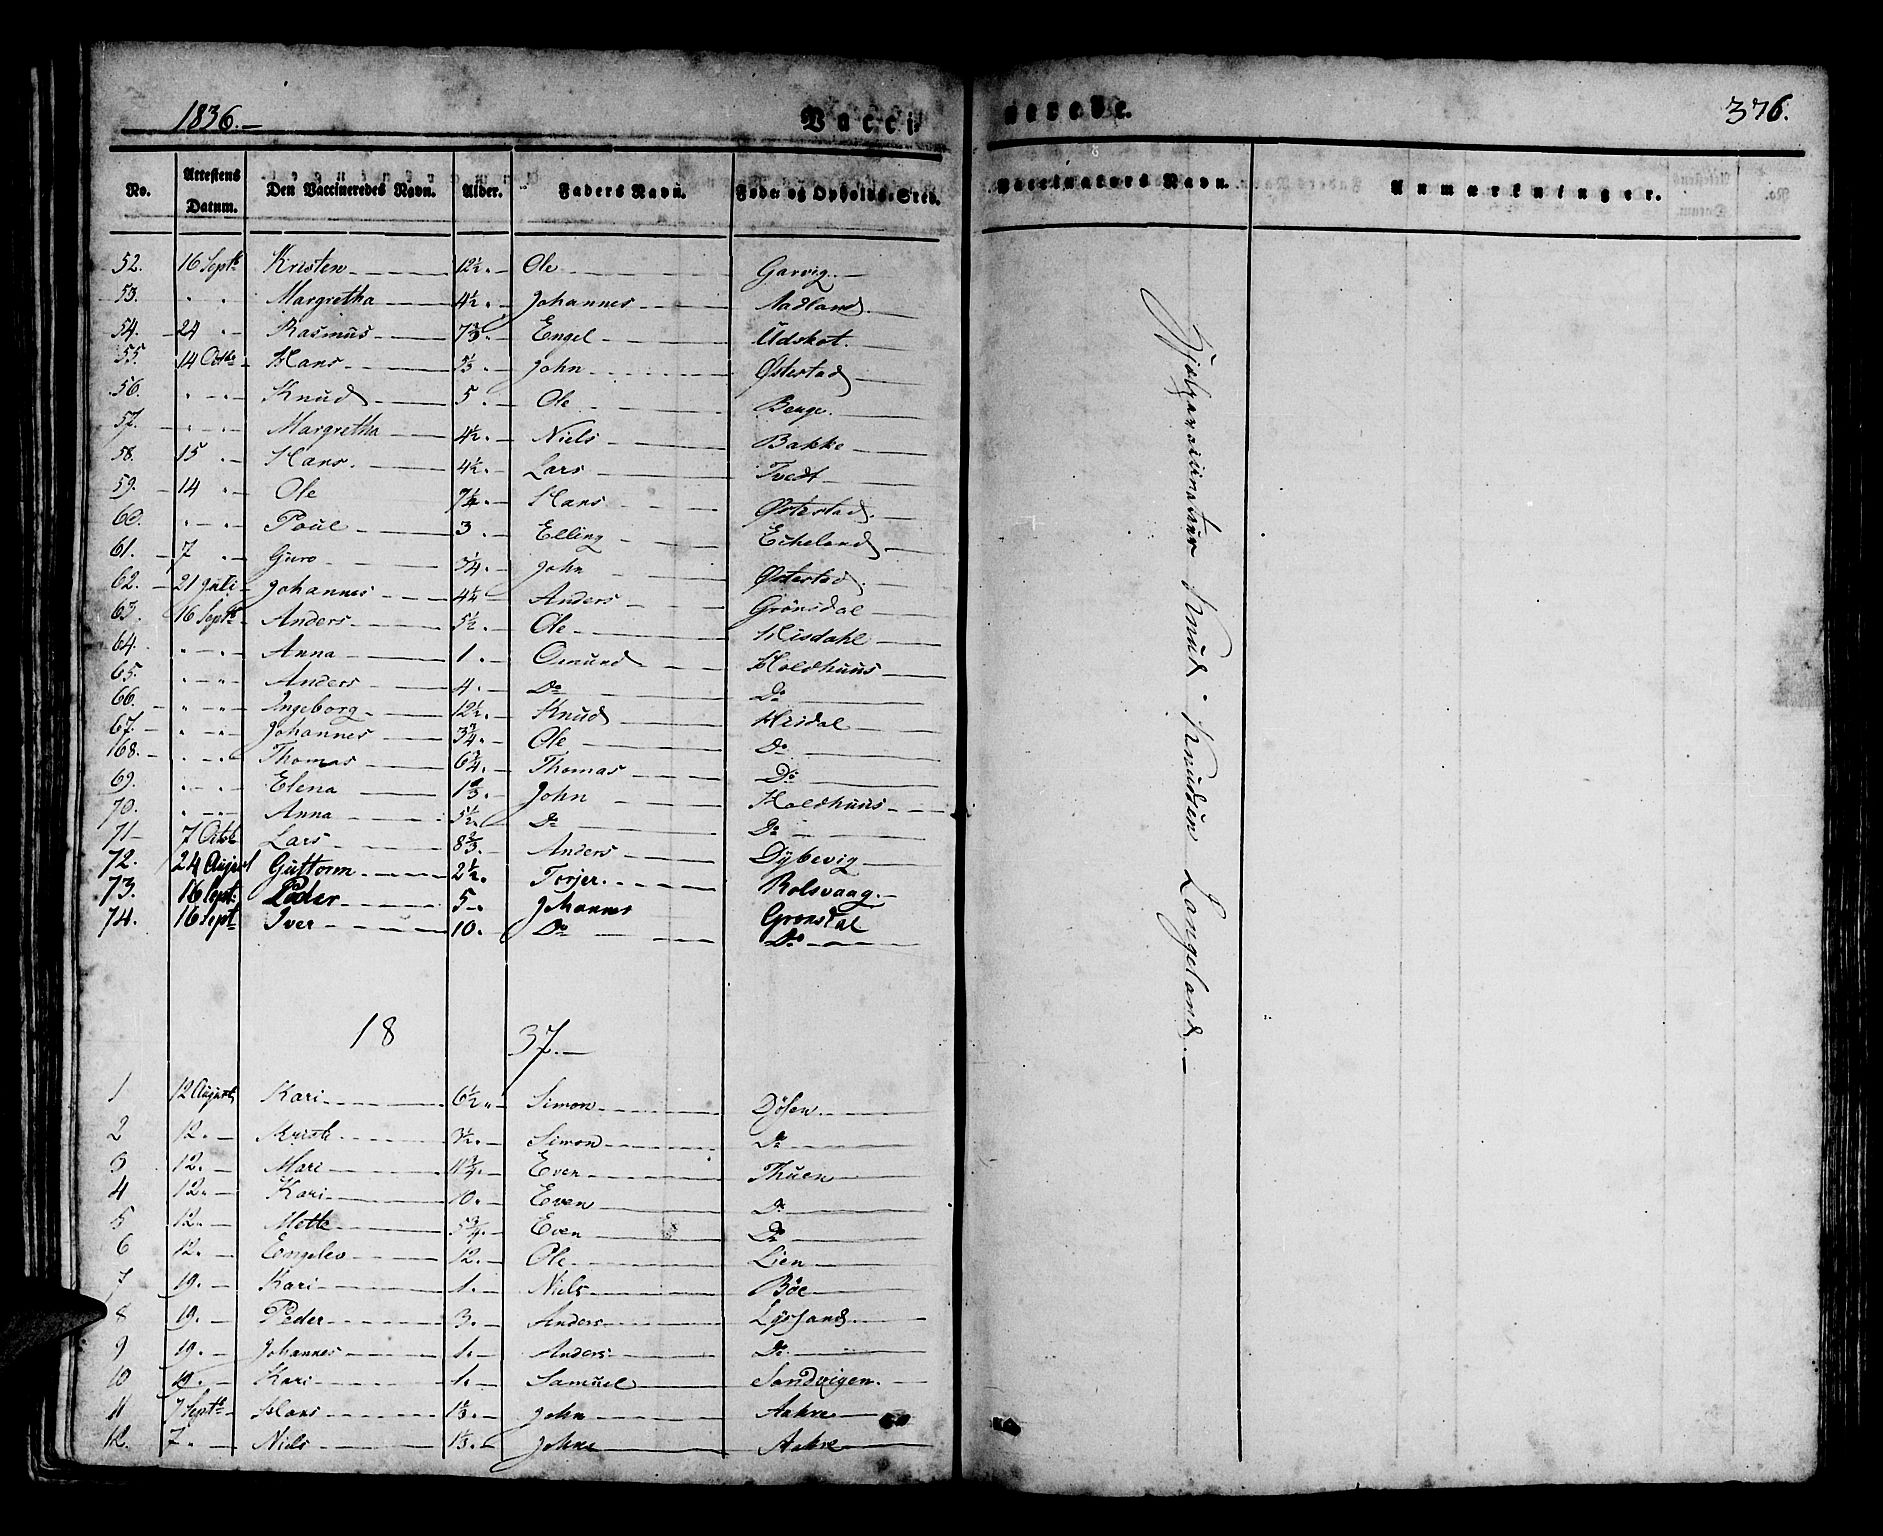 1836.— Vaccinerede. 376.
No. Attestens Datum. Den Vaccineredes Navn. Alder. Faders Navn. Føde- og Opholds-Sted. Vaccinateurs Navn. Anmærkninger.
52. 16 Septr Kristen 12½. Ole Garvig.
53. " " Margretha 4½. Johannes Aadland.
54. 24 " Rasmus 7⅔ Engel Udskot.
55. 14 Octbr Hans ⅓ John Østestad
56. " " Knud 5. Ole Berge.
57. " " Margretha 4½. Niels Bakke
58. 15 " Hans. 4½. Lars Tvedt
59. 14 " Ole 7¼. Hans Østestad.
60. " " Poul 3. Elling Eikeland
61. 7 " Guro ¾. John Østestad.
62. 21 Juli Johannes 4¼ Anders Grönsdal
63. 16 Septr Anders 5½. Ole Hisdahl
64. " " Anna 1. Omund Holdhuus
65. " " Anders 4. Do Do
66. " " Ingeborg 12½. Knud Hisdal
67. " " Johannes 3¾. Ole Do
168. " " Thomas 6¾. Thomas Do
69. " " Elena 1⅔. John Holdhuus
70. " " Anna 5½. Do Do
71 7 Octbr Lars 8⅔. Anders Dybevig
72. 24 August Guttorm 2½. Torjer. Rolsvaag.
73. 16 Sept: Peder 5. Johannes Gronsdal
74. 16 Sept Iver 10. Do Do
Hjelpevaccinateur Knud Knudsen Langeland.
18 37.
1 12 August Kari 6½. Simon Djøsen.
2 12. Kristi 3½. Simon Do
3 12. Mari 11¾. Even Thuen
4 12. Kari 10. Even Do
5 12. Mette 5¾. Even Do
6 12. Engelev 12. Ole Lien
7 19. Kari 1. Niels Bøe
8 19. Peder 3. Anders Lyssand
9 19. Johannes 1. Anders Do
10 19. Kari 1. Samuel Sandvigen.
11 7 Septr Hans 1⅓. John Aakre
12. 7. Niels 1⅓. Johne Aakre